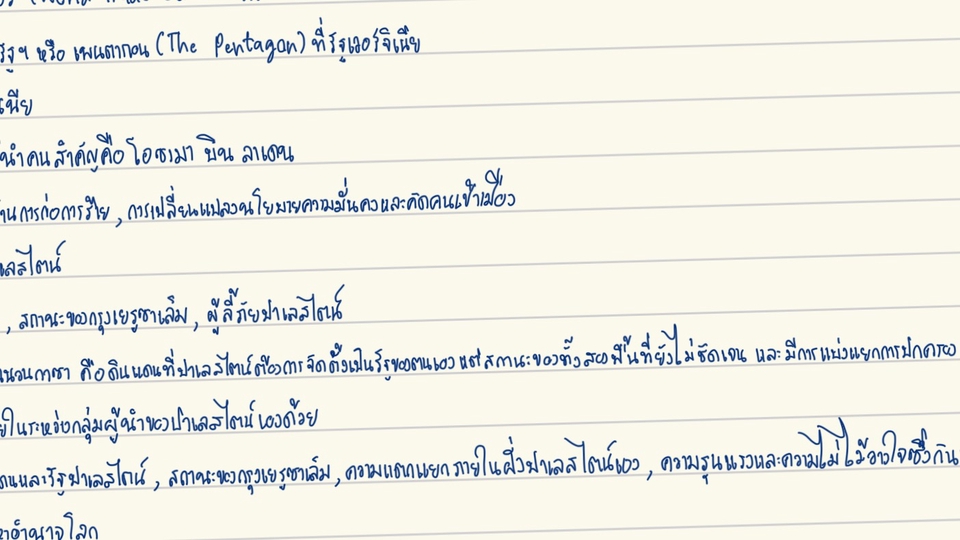 รัฐฯ หรือ เพนตากอน (The Pentagon) ที่รัฐเวอร์จิเนีย
เนีย
นำคนสำคัญคือ โอซามา บิน ลาเดน
การก่อการร้าย, การเปลี่ยนแปลงนโยบายความมั่นคงและคัดคนเข้าเมือง
เลสไตน์
, สถานะของกรุงเยรูซาเล็ม, ผู้ลี้ภัยปาเลสไตน์
นวนกาซา คือดินแดนที่ปาเลสไตน์ต้องการจัดตั้งเป็นรัฐของตนเอง แต่สถานะของทั้งสองพื้นที่ยังไม่ชัดเจน และมีการแบ่งแยกการปกครอง
ในระหว่างกลุ่มผู้นำของปาเลสไตน์เองด้วย
และรัฐปาเลสไตน์, สถานะของกรุงเยรูซาเล็ม, ความแตกแยกภายในฝั่งปาเลสไตน์เอง, ความรุนแรงและความไม่ไว้วางใจซึ่งกัน
อำนาจโลก